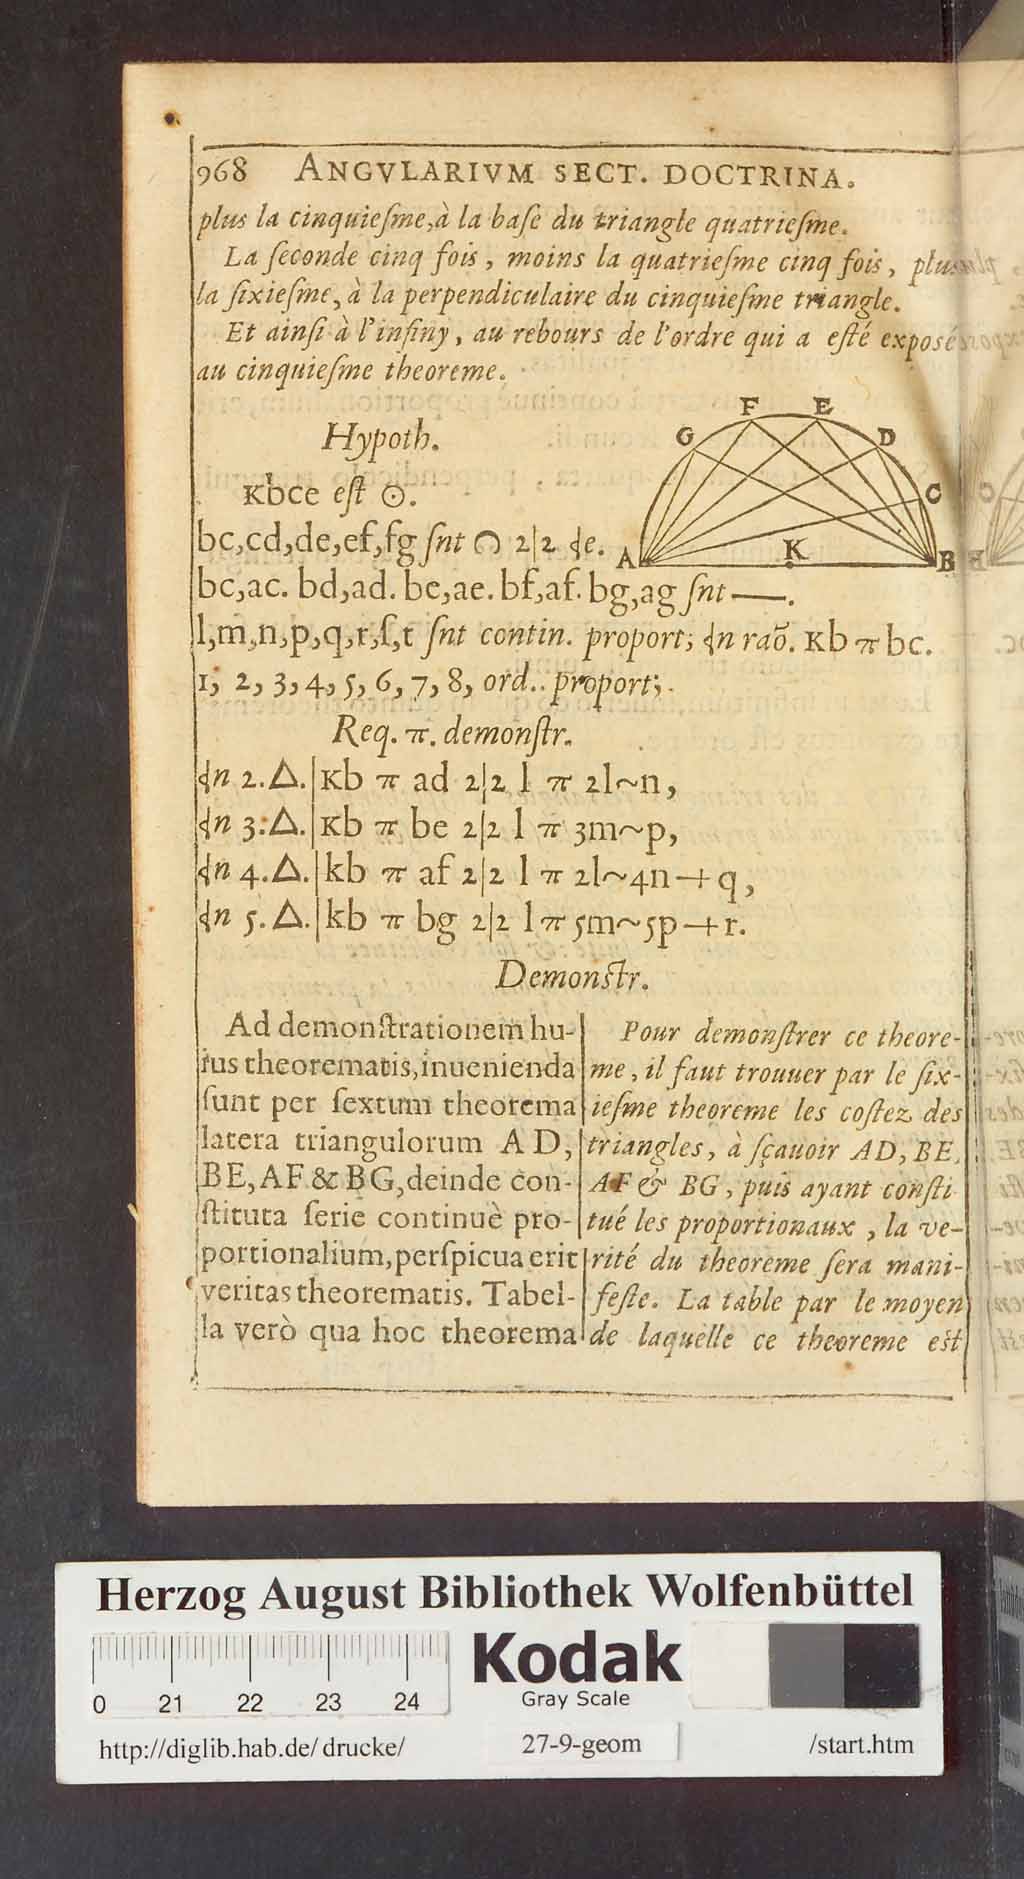 968 ANGVLARIVM SECT. DOCTRINA.
plus la cinquieſme, à la baſe du triangle quatrieſme.
La ſeconde cinq fois, moins la quatrieſme cinq fois, plus
la ſixieſme, à la perpendiculaire du cinquieſme triangle.
Et ainſi à l'infiny, au rebours de l'ordre qui a eſté exposé
au cinquieſme theoreme.
Hypoth.
Kbce eſt ⊙.
bc,cd,de,ef,fg ſnt ⌒ 2|2 ∢e.
bc,ac. bd,ad. be,ae. bf,af. bg,ag ſnt —.
l,m,n,p,q,r,ſ,t ſnt contin. proport; ∢n raõ. Kb π bc.
1, 2, 3, 4, 5, 6, 7, 8, ord.. proport;.
G F E D C A K B
Req. π. demonſtr.
∢n 2.△. | Kb π ad 2|2 l π 2l~n,
∢n 3.△. | Kb π be 2|2 l π 3m~p,
∢n 4.△. | kb π af 2|2 l π 2l~4n+q,
∢n 5.△. | kb π bg 2|2 l π 5m~5p+r.
Demonſtr.
Ad demonſtrationem hu-
ius theorematis, inuenienda
ſunt per ſextum theorema
latera triangulorum AD,
BE, AF & BG, deinde con-
ſtituta ſerie continuè pro-
portionalium, perſpicua erit
veritas theorematis. Tabel-
la verò qua hoc theorema
Pour demonſtrer ce theore-
me, il faut trouuer par le ſix-
ieſme theoreme les coſtez des
triangles, à ſçauoir AD, BE,
AF & BG, puis ayant conſti
tué les proportionaux, la ve-
rité du theoreme ſera mani-
feſte. La table par le moyen
de laquelle ce theoreme eſt
Herzog August Bibliothek Wolfenbüttel
0 21 22 23 24
Kodak
Gray Scale
http://diglib.hab.de/drucke/ 27-9-geom /start.htm